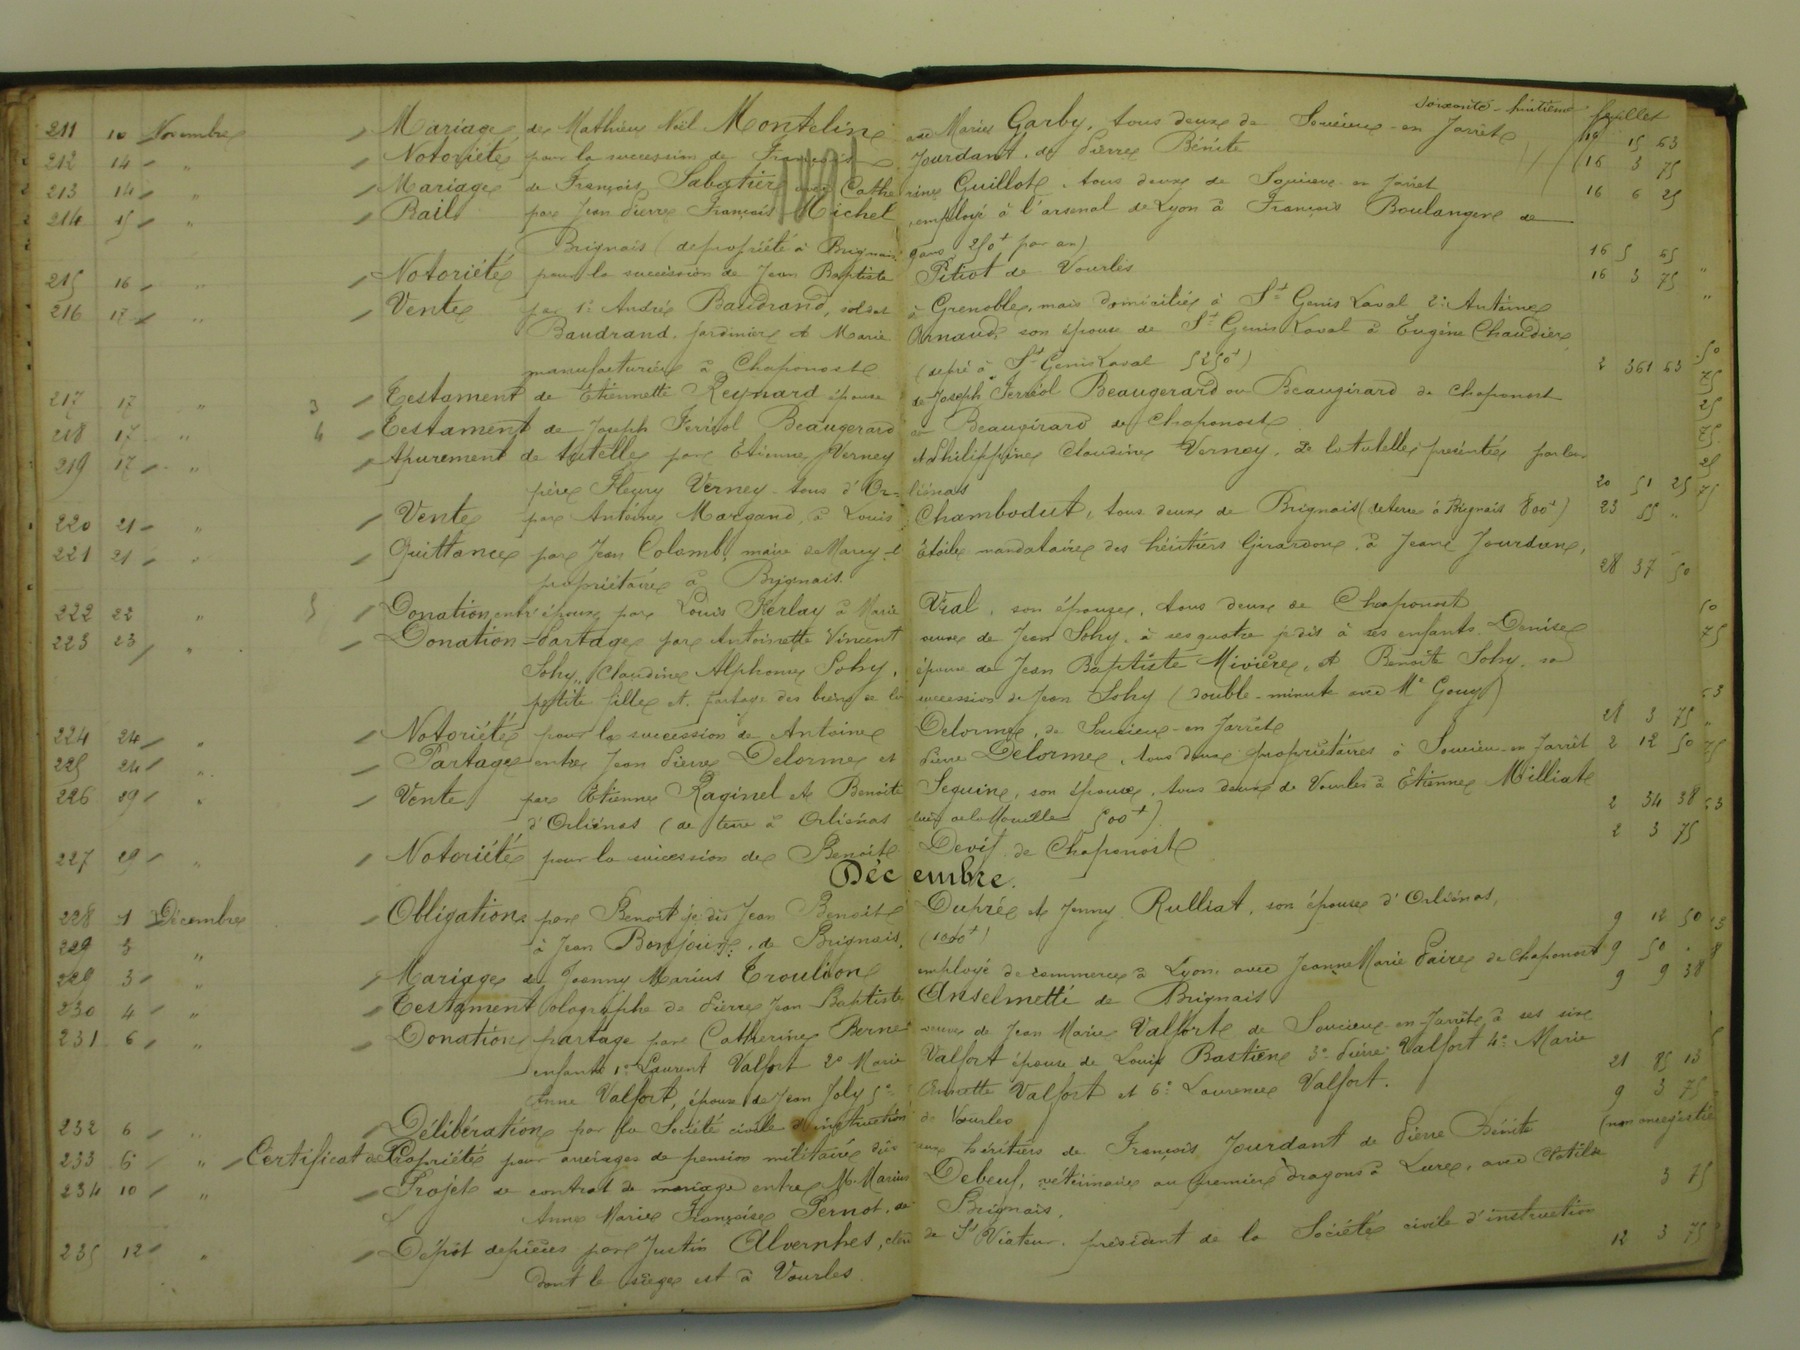 soixante-huitième feuillet
211 10 Novembre Mariage de Mathieu Noël Montelin avec Marie Garby, tous deux de Soucieu-en-Jarrêt 16 15 63
212 14 " Notoriété pour la succession de François Jourdant, de Pierre Bénite 16 3 75
213 14 " Mariage de François Sabatier avec Catherine Guillot, tous deux de Soucieu en Jarret 16 6 25
214 15 " Bail par Jean Pierre François Michel, employé à l'arsenal de Lyon à François Boulanger de
Brignais (de propriété à Brignais 250f par an) 16 5 65
215 16 " Notoriété pour la succession de Jean Baptiste Pitiot de Vourles 16 3 75
216 17 " Vente par 1° André Baudrand, soldat à Grenoble, mais domicilié à St Genis Laval 2° Antoine
Baudrand, jardinier et Marie Arnaud, son épouse de St Genis Laval à Eugène Chaudier,
manufacturier à Chaponost (de pré à St Genis Laval 5250f) 2 361 63
217 17 " 3 Testament de Etiennette Reynard épouse de Joseph Ferréol Beaugerard ou Beaugirard de Chaponost
218 17 " 4 Testament de Joseph Ferréol Beaugerard ou Beaugirard de Chaponost
219 17 " Apurement de tutelle par Etienne Verney et Philippine Claudine Verney, de la tutelle présentée par leur
père Fleury Verney tous d'Orliénas 20 51 25
220 21 " Vente par Antoine Margand, à Louis Chambodut, tous deux de Brignais (de terre à Brignais 800f) 23 55 "
221 21 " Quittance par Jean Colomb, maire de Marcy-l'Étoile mandataire des héritiers Girardon, à Jean Jourdan,
propriétaire à Brignais. 28 37 50
222 22 " 5 Donation entr'époux par Louis Ferlay à Marie Vial, son épouse, tous deux de Chaponost
223 23 " Donation-Partage par Antoinette Vincent veuve de Jean Sohy, à ses quatre je dis à ses enfants Denise
Sohy, Claudine Alphonse Sohy, épouse de Jean Baptiste Mivière, et Benoîte Sohy, sa
petite fille et partage des biens de la succession de Jean Sohy (double-minute avec Me Gouy)
224 24 " Notoriété pour la succession de Antoine Delorme, de Soucieu-en-Jarrêt 28 3 75
225 24 " Partage entre Jean Pierre Delorme et Pierre Delorme, tous deux propriétaires à Soucieu-en Jarrêt 2 12 50
226 29 " Vente par Etienne Raginel et Benoîte Seguin, son épouse, tous deux de Vourles à Etienne Milliat
d'Orliénas (de terre à Orliénas lieu de la Mouille 500f) 2 34 38
227 29 " Notoriété pour la succession de Benoît Devif de Chaponost 2 3 75
Décembre.
228 1 Décembre Obligation par Benoît je dis Jean Benoît Dupré et Jenny Rulliat, son épouse d'Orliénas,
229 3 " à Jean Bonjour, de Brignais. (1000f) 9 12 50
229 3 " Mariage de Joanny Marius Troullion employé de commerce à Lyon, avec Jeanne Marie Paire de Chaponost 9 50 "
230 4 " Testament olographe de Pierre Jean-Baptiste Anselmetti de Brignais 9 9 38
231 6 " Donation partage par Catherine Berne veuve de Jean Marie Valfort de Soucieu-en-Jarrêt, à ses six
enfants 1° Laurent Valfort 2° Marie Valfort épouse de Louis Bastien 3° Pierre Valfort 4° Marie
Anne Valfort, épouse de Jean Joly 5° Annette Valfort et 6° Laurence Valfort. 21 85 13
232 6 " Délibération par la Société civile d'instruction de Vourles 9 3 75
233 6 " Certificat de Propriété pour arrérages de pension militaire dûs aux héritiers de François Jourdant de Pierre Bénite (non enregistré)
234 10 " Projet de contrat de mariage entre M. Marius Debeuf, vétérinaire au premier dragons à Lure, avec Clotilde
Anne Marie Françoise Pernot, de Brignais. 3 75
235 12 " Dépôt de pièces par Justin Alvernhes, clerc de St Viateur, président de la Société civile d'instruction
dont le siège est à Vourles. 12 3 75